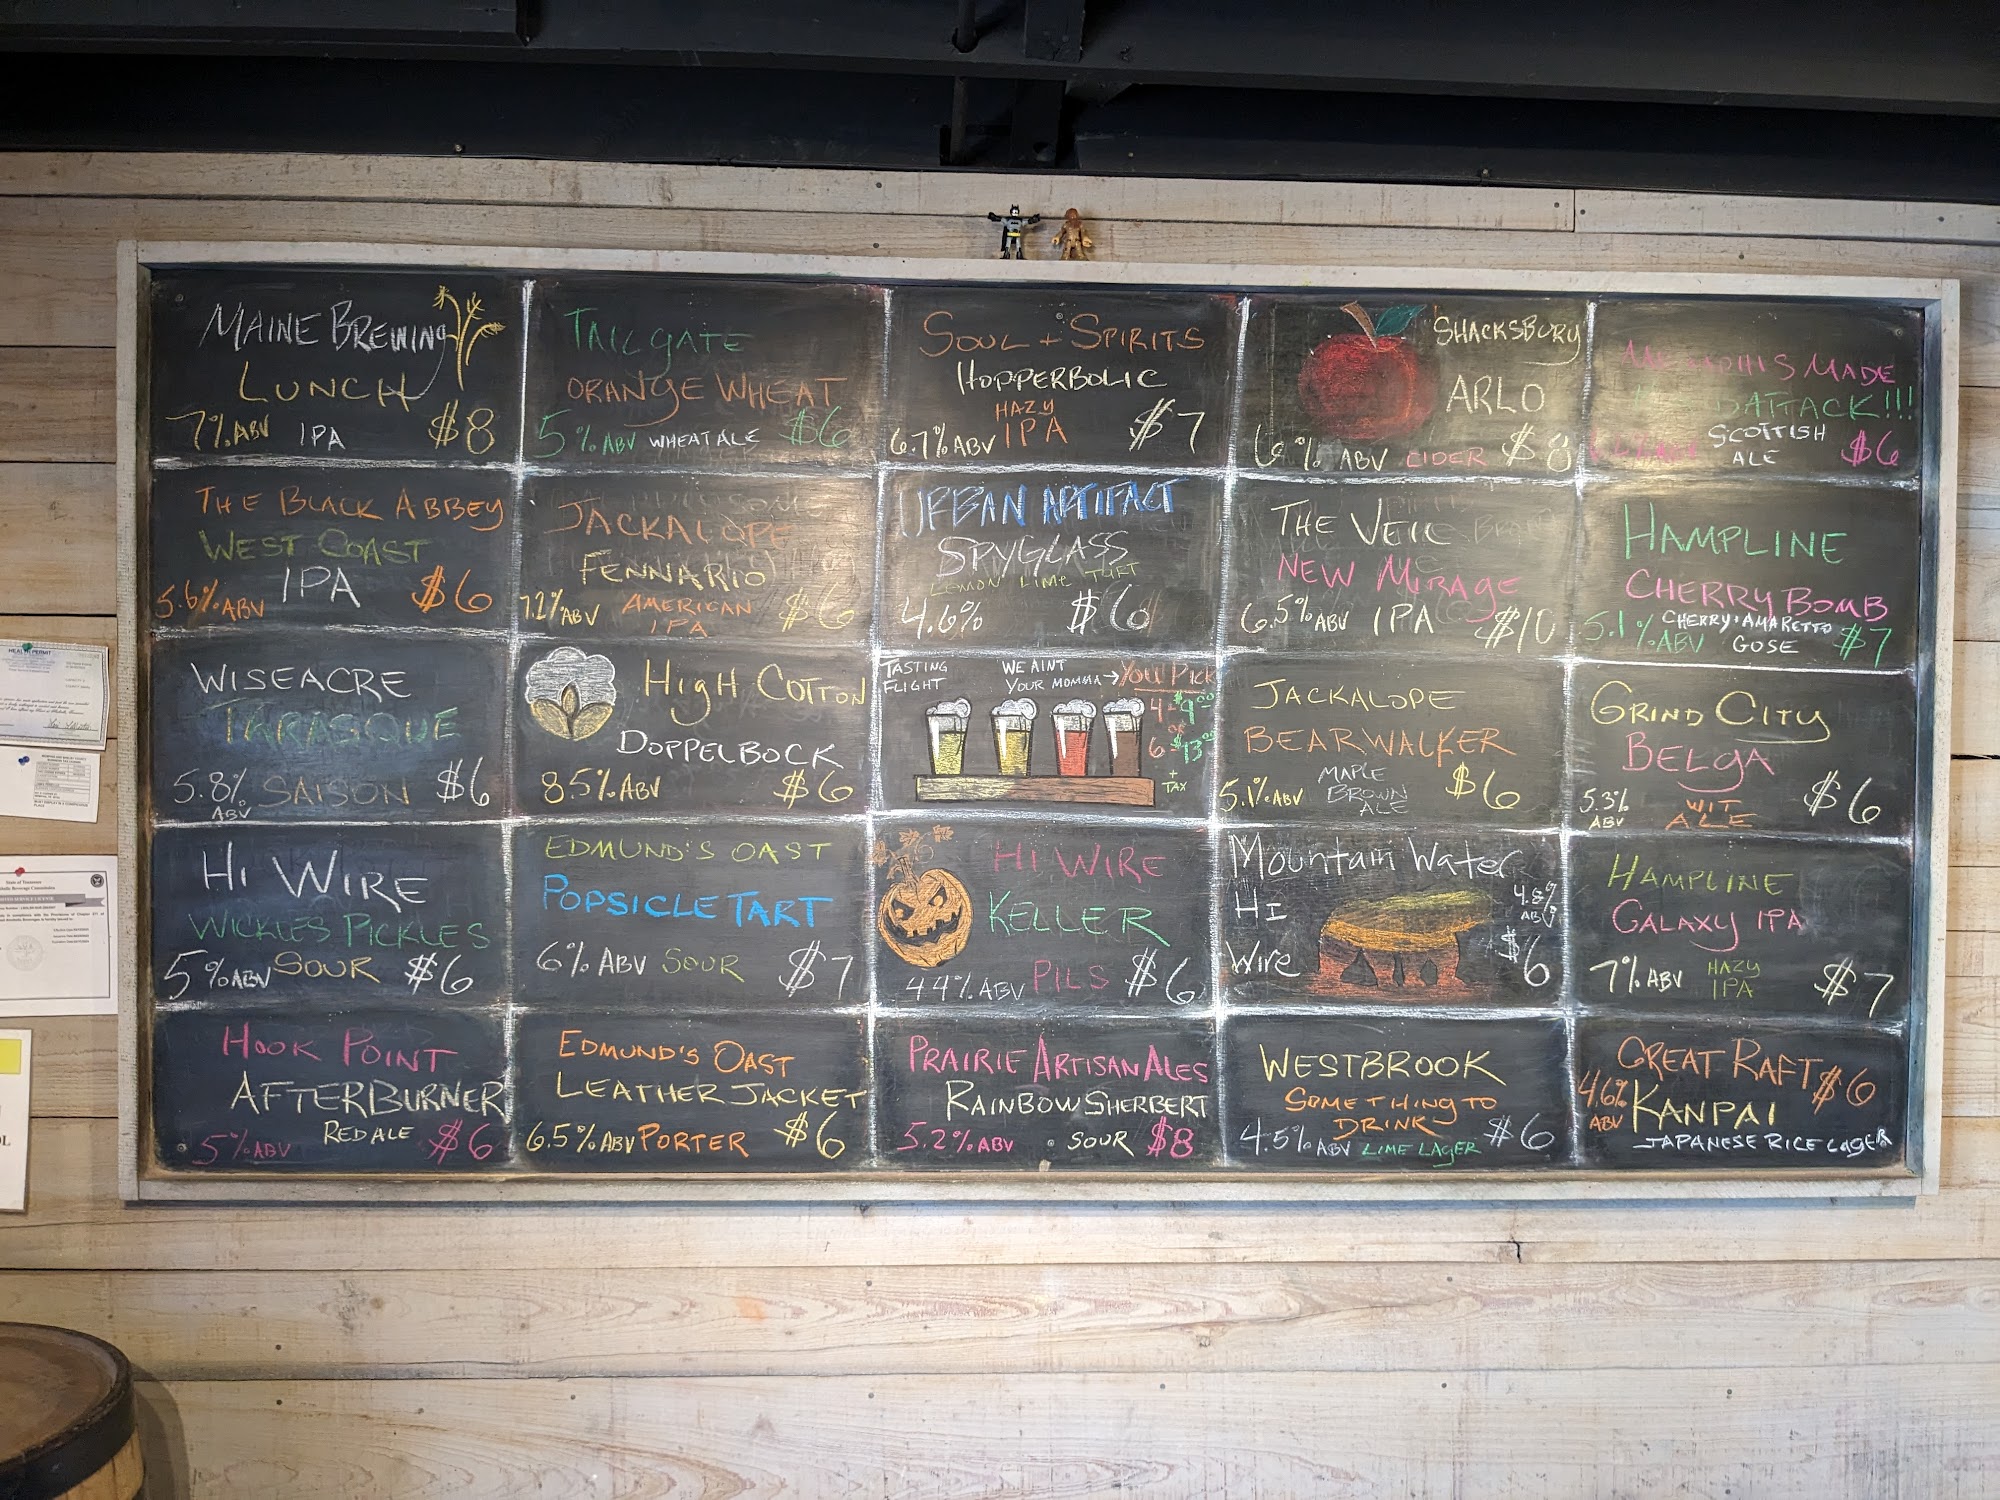 MAINE BREWING
LUNCH
7% ABV IPA $8
TAILGATE
ORANGE WHEAT
5% ABV WHEAT ALE $6
SOUL + SPIRITS
HOPPERBOLIC
HAZY
6.7% ABV IPA $7
SHACKSBURY
ARLO
6% ABV CIDER $8
MEMPHIS MADE
ATTACK!!!
SCOTTISH
ALE $6
THE BLACK ABBEY
WEST COAST
5.6% ABV IPA $6
JACKALOPE
FENNARIO
7.2% ABV AMERICAN $6
IPA
URBAN ARTIFACT
SPYGLASS
LEMON LIME TART
4.6% $6
THE VEIL
NEW MIRAGE
6.5% ABV IPA $10
HAMPLINE
CHERRY BOMB
5.1% ABV CHERRY·AMARETTO $7
GOSE
WISEACRE
TARASQUE
5.8% SAISON $6
ABV
HIGH COTTON
DOPPELBOCK
8.5% ABV $6
TASTING
FLIGHT
WE AINT
YOUR MOMMA→ YOU PICK
4 - $9.00
6 - $13.00
+
TAX
JACKALOPE
BEARWALKER
5.1% ABV MAPLE $6
BROWN
ALE
GRIND CITY
BELGA
5.3% WIT $6
ABV ALE
HI WIRE
WICKLES PICKLES
5% ABV SOUR $6
EDMUND'S OAST
POPSICLE TART
6% ABV SOUR $7
HI WIRE
KELLER
4.4% ABV PILS $6
Mountain Water
Hi 4.8%
ABV
Wire $6
HAMPLINE
GALAXY IPA
7% ABV HAZY $7
IPA
HOOK POINT
AFTERBURNER
RED ALE
5% ABV $6
EDMUND'S OAST
LEATHER JACKET
6.5% ABV PORTER $6
PRAIRIE ARTISAN ALES
RAINBOW SHERBERT
5.2% ABV SOUR $8
WESTBROOK
SOMETHING TO
DRINK $6
4.5% ABV LIME LAGER
GREAT RAFT $6
4.6% KANPAI
ABV
JAPANESE RICE LAGER
HEALTH PERMIT